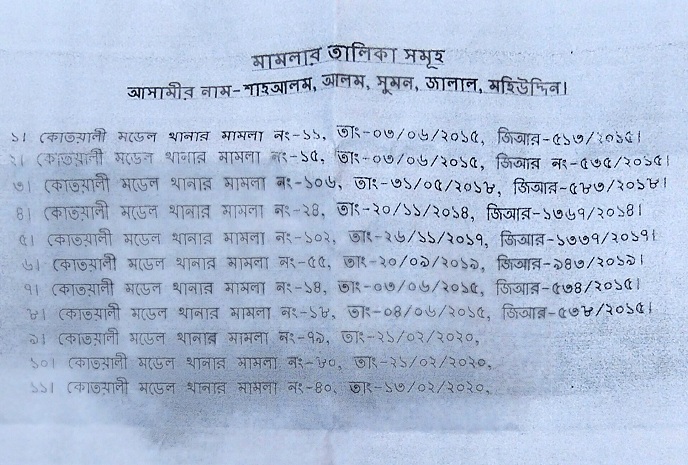 মামলার তালিকা সমূহ
আসামীর নাম-শাহআলম, আলম, সুমন, জালাল, মহিউদ্দিন।
১। কোতয়ালী মডেল থানার মামলা নং-১১, তাং-০৩/০৬/২০১৫, জিআর-৫১৩/২০১৫।
২। কোতয়ালী মডেল থানার মামলা নং-১৫, তাং-০৩/০৬/২০১৫, জিআর নং-৫৩৫/২০১৫।
৩। কোতয়ালী মডেল থানার মামলা নং-১০৬, তাং-৩১/০৫/২০১৮, জিআর-৫৮৩/২০১৮।
৪। কোতয়ালী মডেল থানার মামলা নং-২৪, তাং-২০/১১/২০১৪, জিআর-১৩৬৭/২০১৪।
৫। কোতয়ালী মডেল থানার মামলা নং-১০২, তাং-২৬/১১/২০১৭, জিআর-১৩৩৭/২০১৭।
৬। কোতয়ালী মডেল থানার মামলা নং-৫৫, তাং-২০/০৯/২০১৯, জিআর-৯৪৩/২০১৯।
৭। কোতয়ালী মডেল থানার মামলা নং-১৪, তাং-০৩/০৬/২০১৫, জিআর-৫৩৪/২০১৫।
৮। কোতয়ালী মডেল থানার মামলা নং-১৮, তাং-০৪/০৬/২০১৫, জিআর-৫৩৮/২০১৫।
৯। কোতয়ালী মডেল থানার মামলা নং-৭৯, তাং-২১/০২/২০২০,
১০। কোতয়ালী মডেল থানার মামলা নং-৮০, তাং-২১/০২/২০২০,
১১। কোতয়ালী মডেল থানার মামলা নং-৪০, তাং-১৩/০২/২০২০,